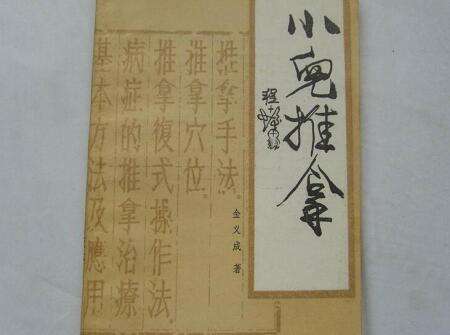 小兒推拿
程十發題
金义成 著
推拿手法。
推拿穴位。
推拿復式操作法。
病症的推拿治療
基本方法及應用